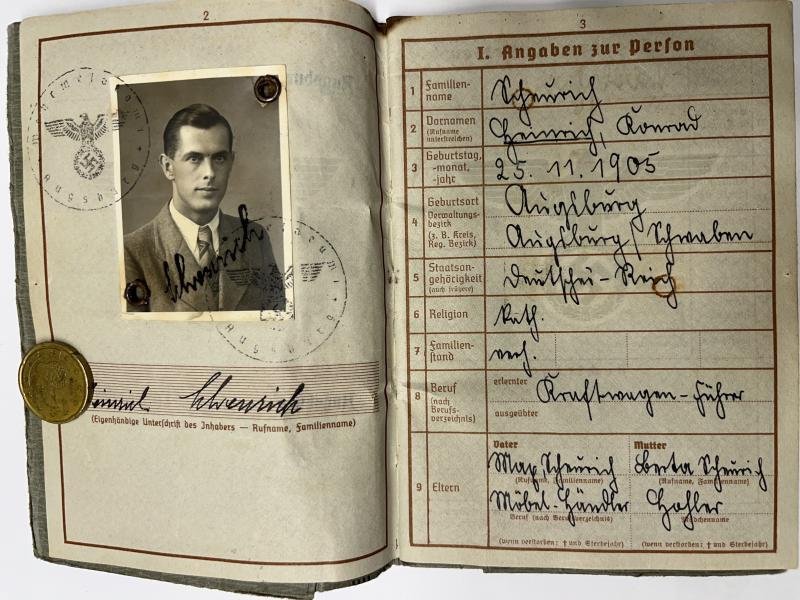 2
Wehrmeldeamt * Augsburg
Scheurich
Wehrmeldeamt * Augsburg
Heinrich Scheurich
(Eigenhändige Unterschrift des Inhabers — Rufname, Familienname)
3
I. Angaben zur Person
1 Familien-
name
Scheurich
2 Vornamen
(Rufname
unterstreichen)
Heinrich, Konrad
3 Geburtstag,
-monat,
-jahr
25. 11. 1905
4 Geburtsort
Verwaltungs-
bezirk
(z. B. Kreis,
Reg. Bezirk)
Augsburg
Augsburg/Schwaben
5 Staatsan-
gehörigkeit
(auch frühere)
Deutsches-Reich
6 Religion
kath.
7 Familien-
stand
verh.
8 Beruf
(nach
Berufs-
verzeichnis)
erlernter
Kraftwagen-Führer
ausgeübter
9 Eltern
Vater
Max, Scheurich
(Rufname, Familienname)
Möbel-Händler
Beruf (nach Berufsverzeichnis)
(wenn verstorben: † und Sterbejahr)
Mutter
Berta Scheurich
(Rufname, Familienname)
Hohler
Mädchenname
(wenn verstorben: † und Sterbejahr)